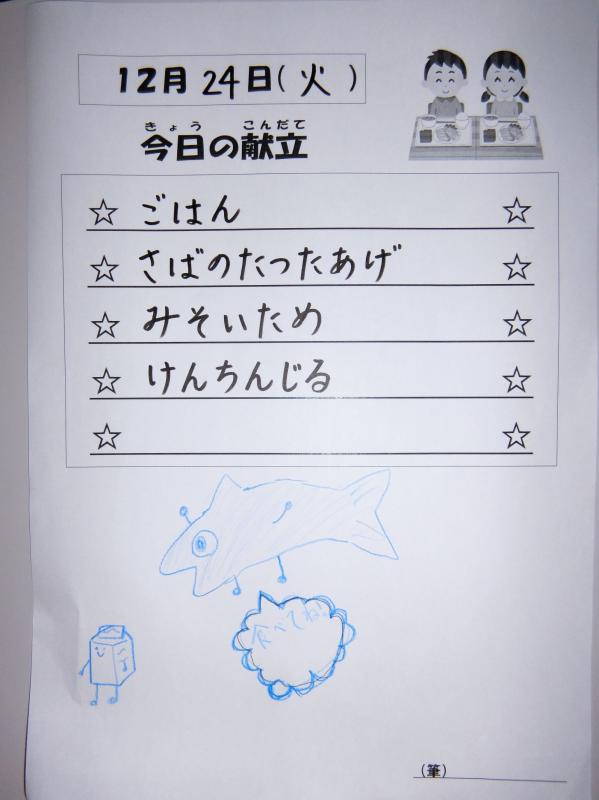 12月24日(火)
きょう こんだて
今日の献立
☆ ごはん ☆
☆ さばのたったあげ ☆
☆ みそいため ☆
☆ けんちんじる ☆
☆ ☆
食べてね!
(筆)